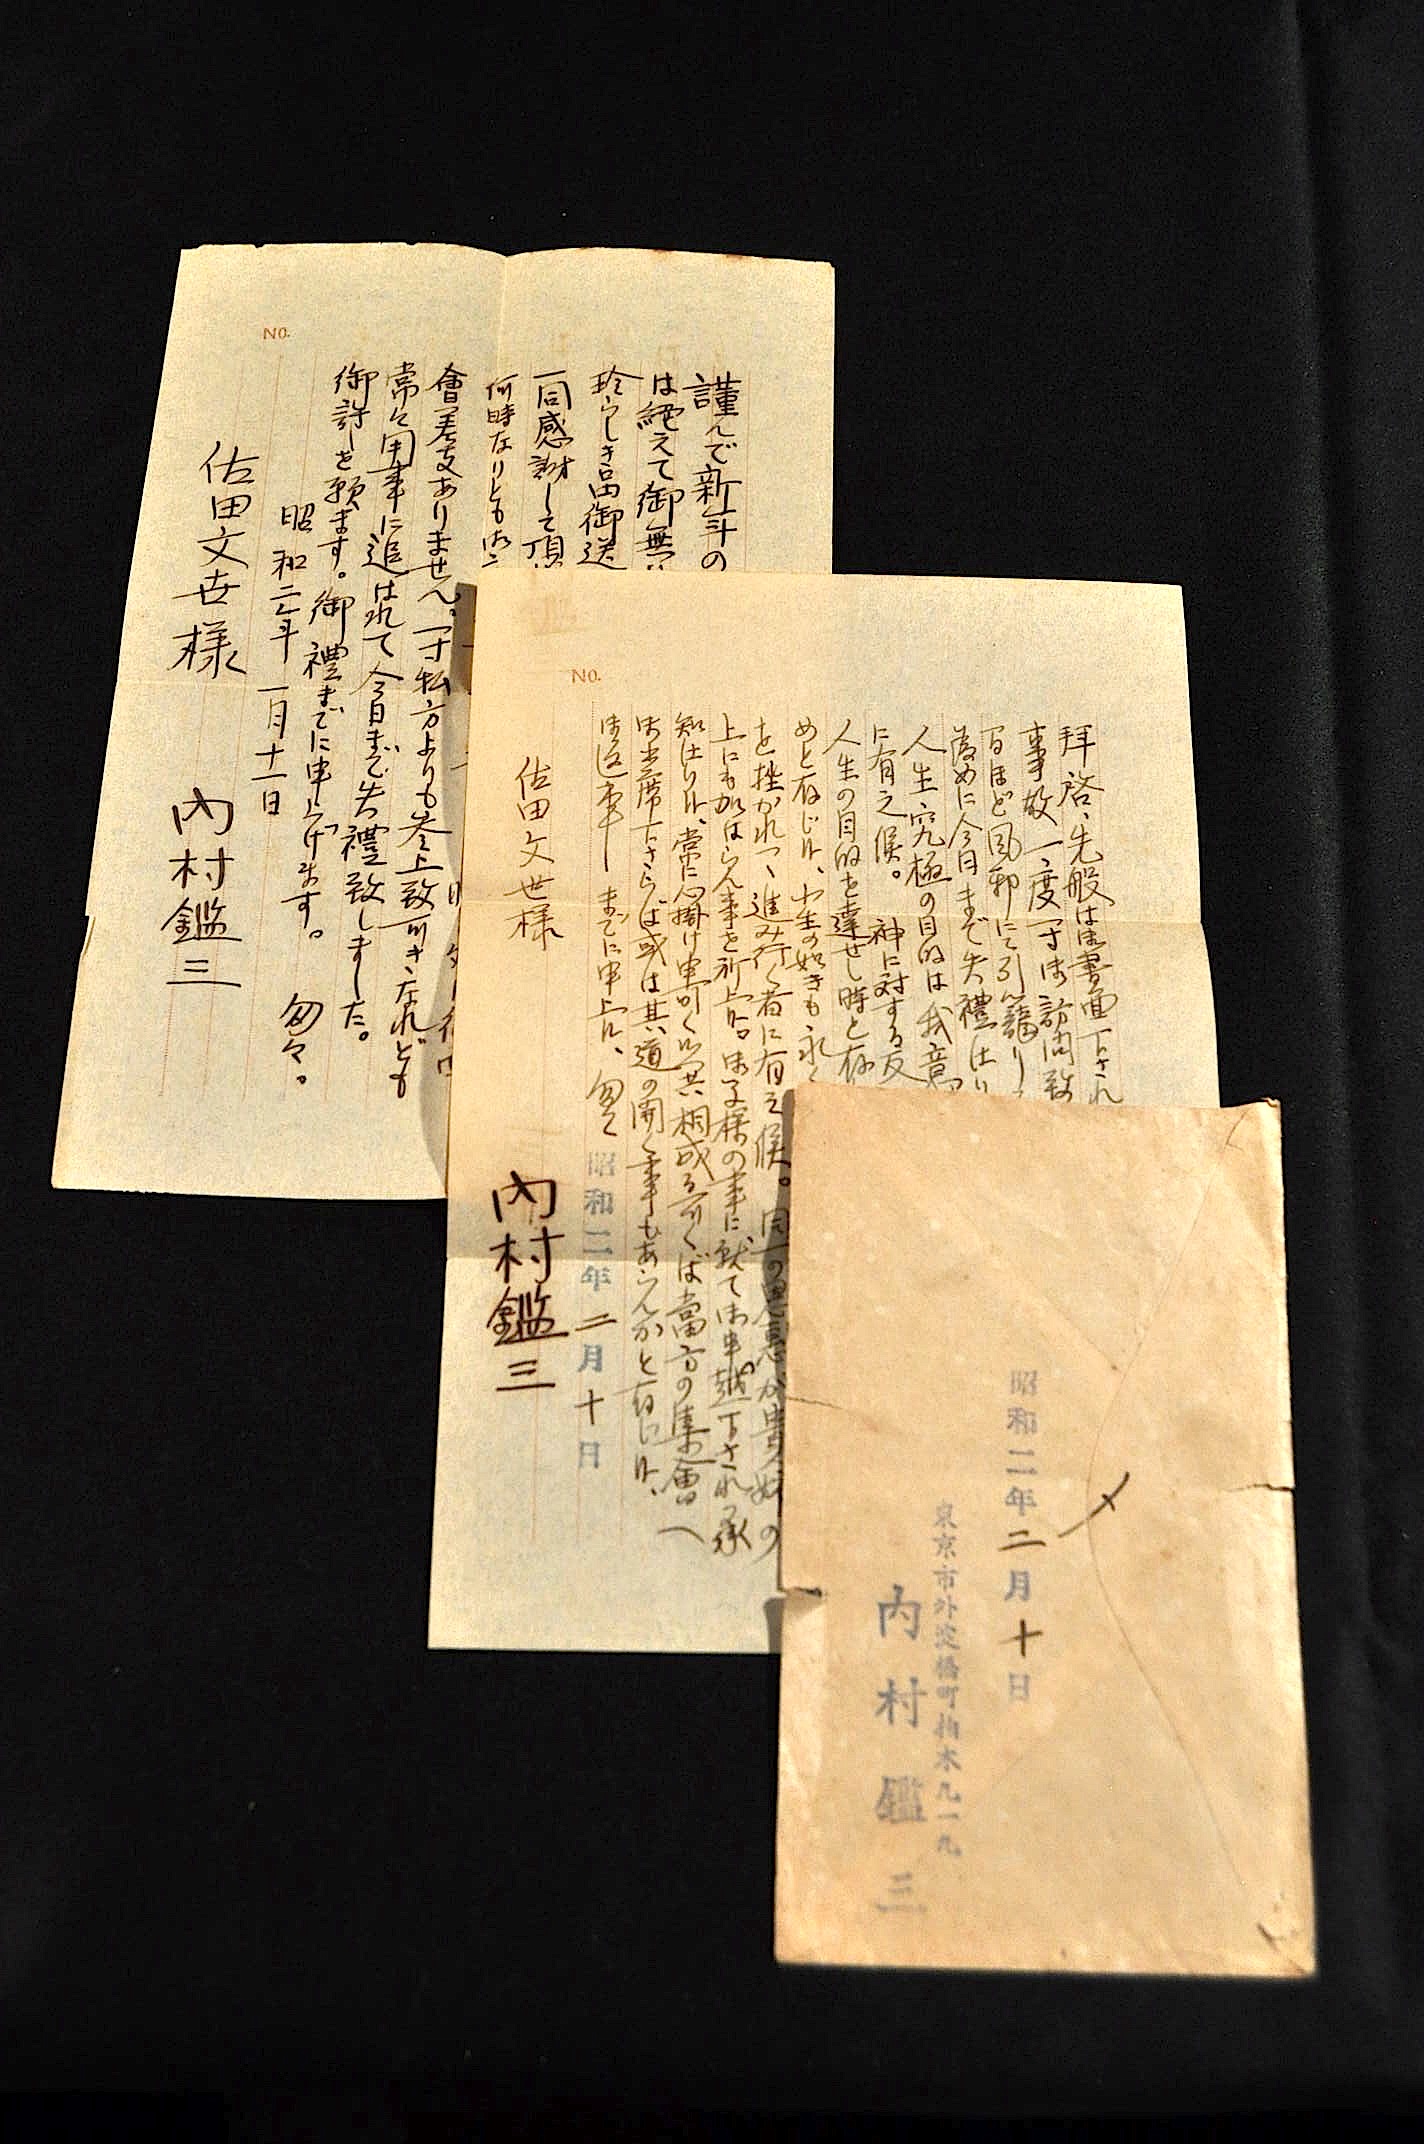 No.
謹んで新年の
は絶えて御無
珍らしき品御送
一同感謝して頂
何時なりとも
會差支ありません。一寸私方よりも参上致可き、なれども
常々用事に追はれて今日まで失禮致しました。
御許しを願ます。御禮までに申上げます。 匆々。
昭和二年 一月十一日
内村鑑三
佐田文世様
No.
拝啓、先般は御書面下され
事故一度一寸御訪問致
日ほど風邪にて引籠り
為めに今日まで失禮仕り
人生究極の目的は我意
に有之候。 神に対する反
人生の目的を達せし時と存
めと存じ候、小生の如きも永く
を挫かれつゝ進み行く者に有之候。同一の恩恵が貴姉の
上にも加はらん事を祈上候。御子様の事に就て御申越下され承
知仕り候、常に心掛け申可く候共相成る可くば當方の集會へ
御出席下さらば或は其道の開く事もあらんかと存じ候、
御返事 までに申上候、匆々
昭和二年二月十日
内村鑑三
佐田文世様
昭和二年二月十日
東京市外淀橋町柏木九一九
内村鑑三